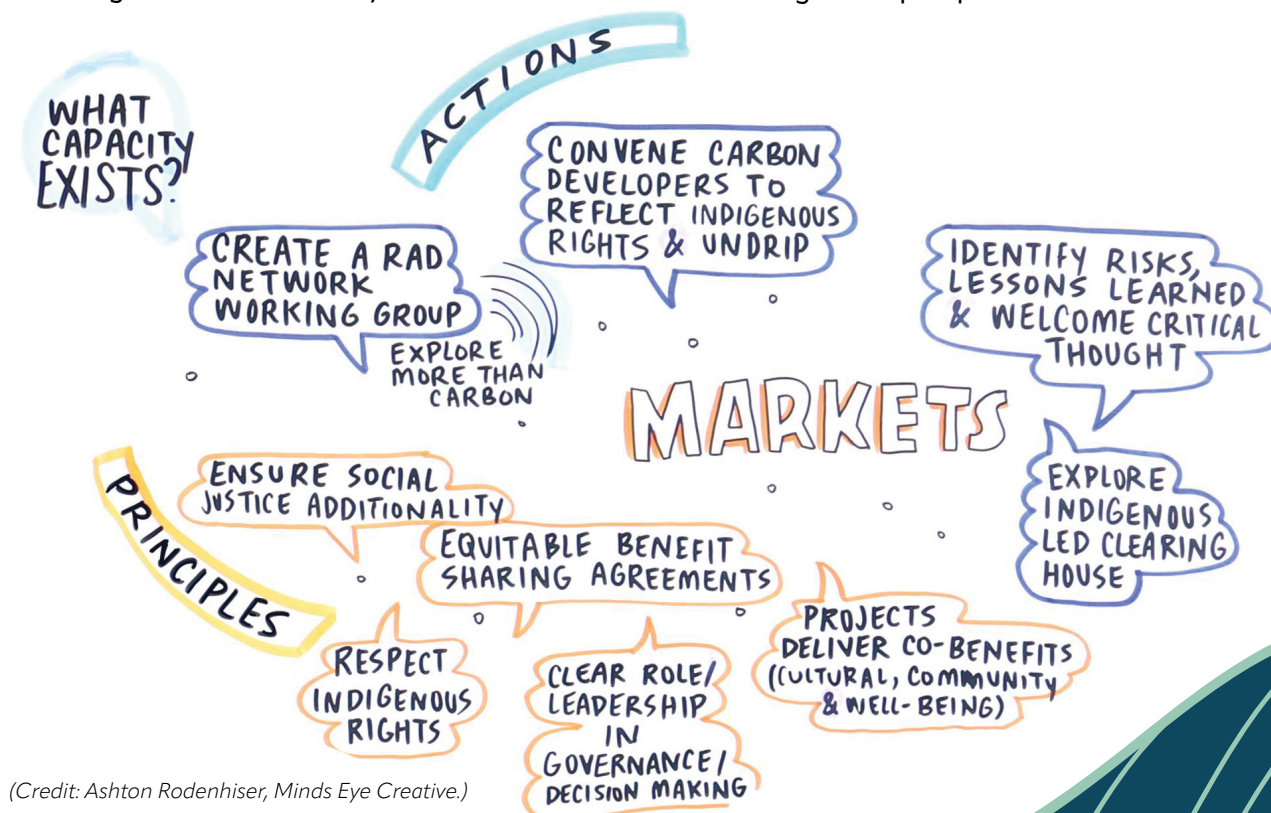 ACTIONS
WHAT
CAPACITY
EXISTS?
CREATE A RAD
NETWORK
WORKING GROUP
EXPLORE
MORE THAN
CARBON
CONVENE CARBON
DEVELOPERS TO
REFLECT INDIGENOUS
RIGHTS & UNDRIP
IDENTIFY RISKS,
LESSONS LEARNED
& WELCOME CRITICAL
THOUGHT
MARKETS
EXPLORE
INDIGENOUS
LED CLEARING
HOUSE
PRINCIPLES
ENSURE SOCIAL
JUSTICE ADDITIONALITY
EQUITABLE BENEFIT
SHARING AGREEMENTS
RESPECT
INDIGENOUS
RIGHTS
CLEAR ROLE/
LEADERSHIP
IN
GOVERNANCE/
DECISION MAKING
PROJECTS
DELIVER CO-BENEFITS
(CULTURAL, COMMUNITY
& WELL-BEING)
(Credit: Ashton Rodenhiser, Minds Eye Creative.)